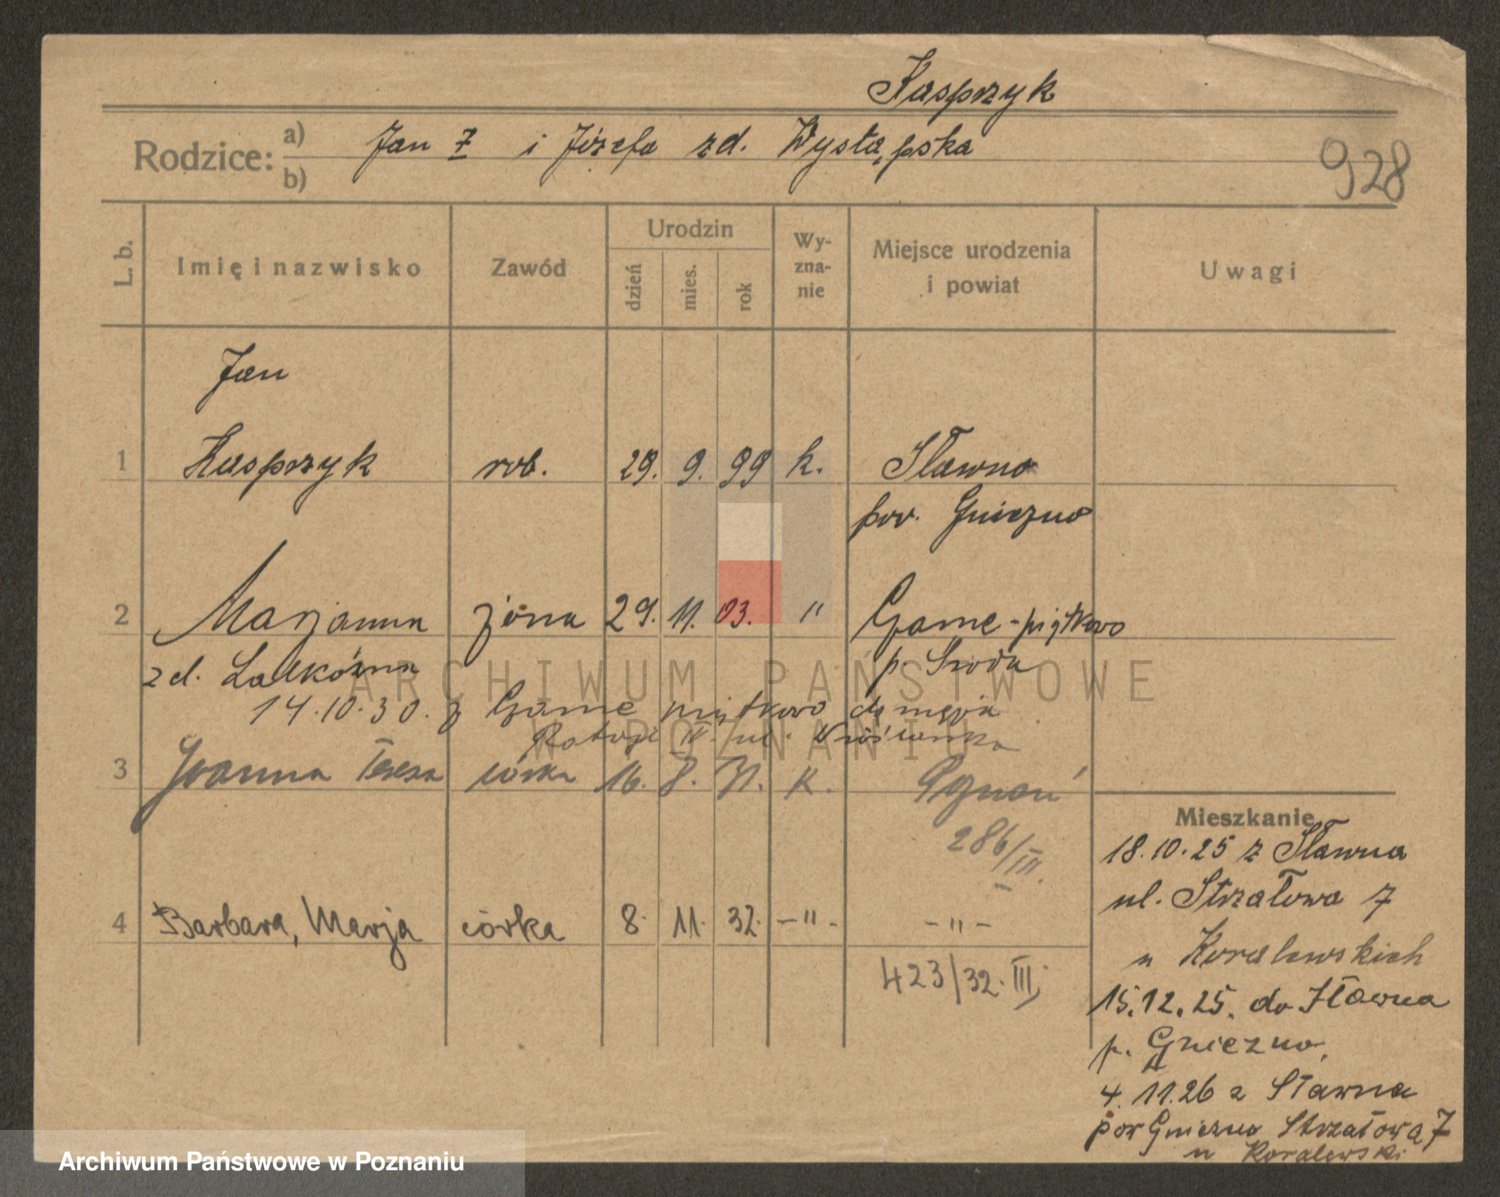 Kasprzyk
Rodzice: a) b) Jan 7 i Józefa zd. Wystąpska
928
L. b.
Imię i nazwisko
Zawód
Urodzin
dzień
mies.
rok
Wy-
zna-
nie
Miejsce urodzenia
i powiat
Uwagi
Jan
1 Kasprzyk rob. 29. 9. 99 k. Sławno
pow. Gniezno
2 Marjanna żona 29. 11. 03. " -piątkowo
zd.
p. Środa
14.10.30. z piątkowo do męża
3 Joanna Teresa córka 16. 8. 31. K. Poznań
286/III.
4 Barbara, Marja córka 8. 11. 32. -"- -"-
423/32. III,
Mieszkanie
18.10.25 z Sławna
ul. Strzałowa 7
u Koralewskich
15.12.25. do Sławna
p. Gniezno.
4.11.26 z Sławna
pow Gniezno Strzałowa 7
u Koralewski
ARCHIWUM PAŃSTWOWE
W POZNANIU
Archiwum Państwowe w Poznaniu